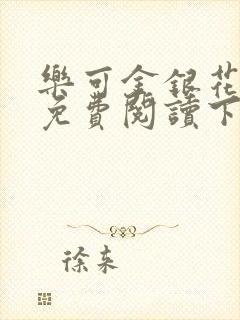 樂可金銀花
免費閱讀下
徐来